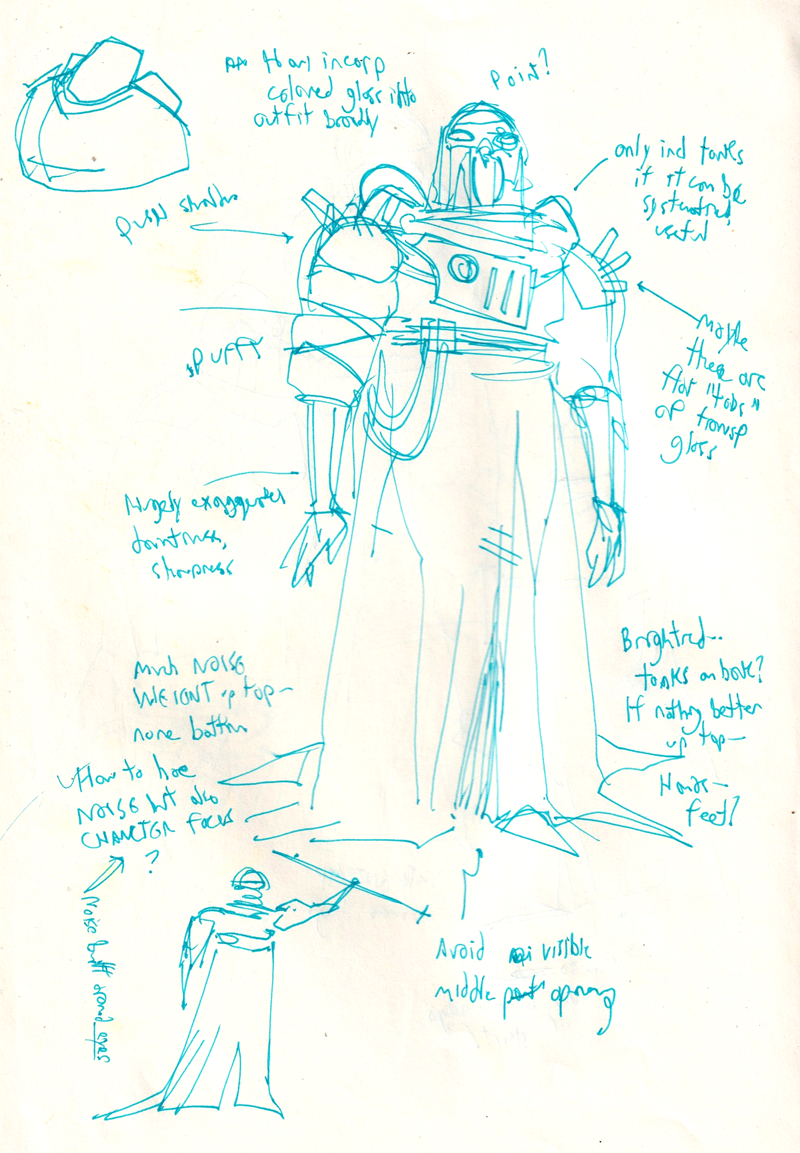 incorp
colored glass into
outfit broadly
Point?
only incl tanks
if it can be
systematized,
useful
push shoulder
PUFFY
Maybe
these are
flat "tabs"
of transp
glass
Hugely exaggerated
daintiness,
sharpness
Much NOISE
WEIGHT up top—
none bottom
How to have
NOISE but also
CHARACTER FOCUS
?
Noise built around eyes
Bright red—
tanks on back?
If nothing better
up top—
Hands—
feet?
Avoid visible
middle opening